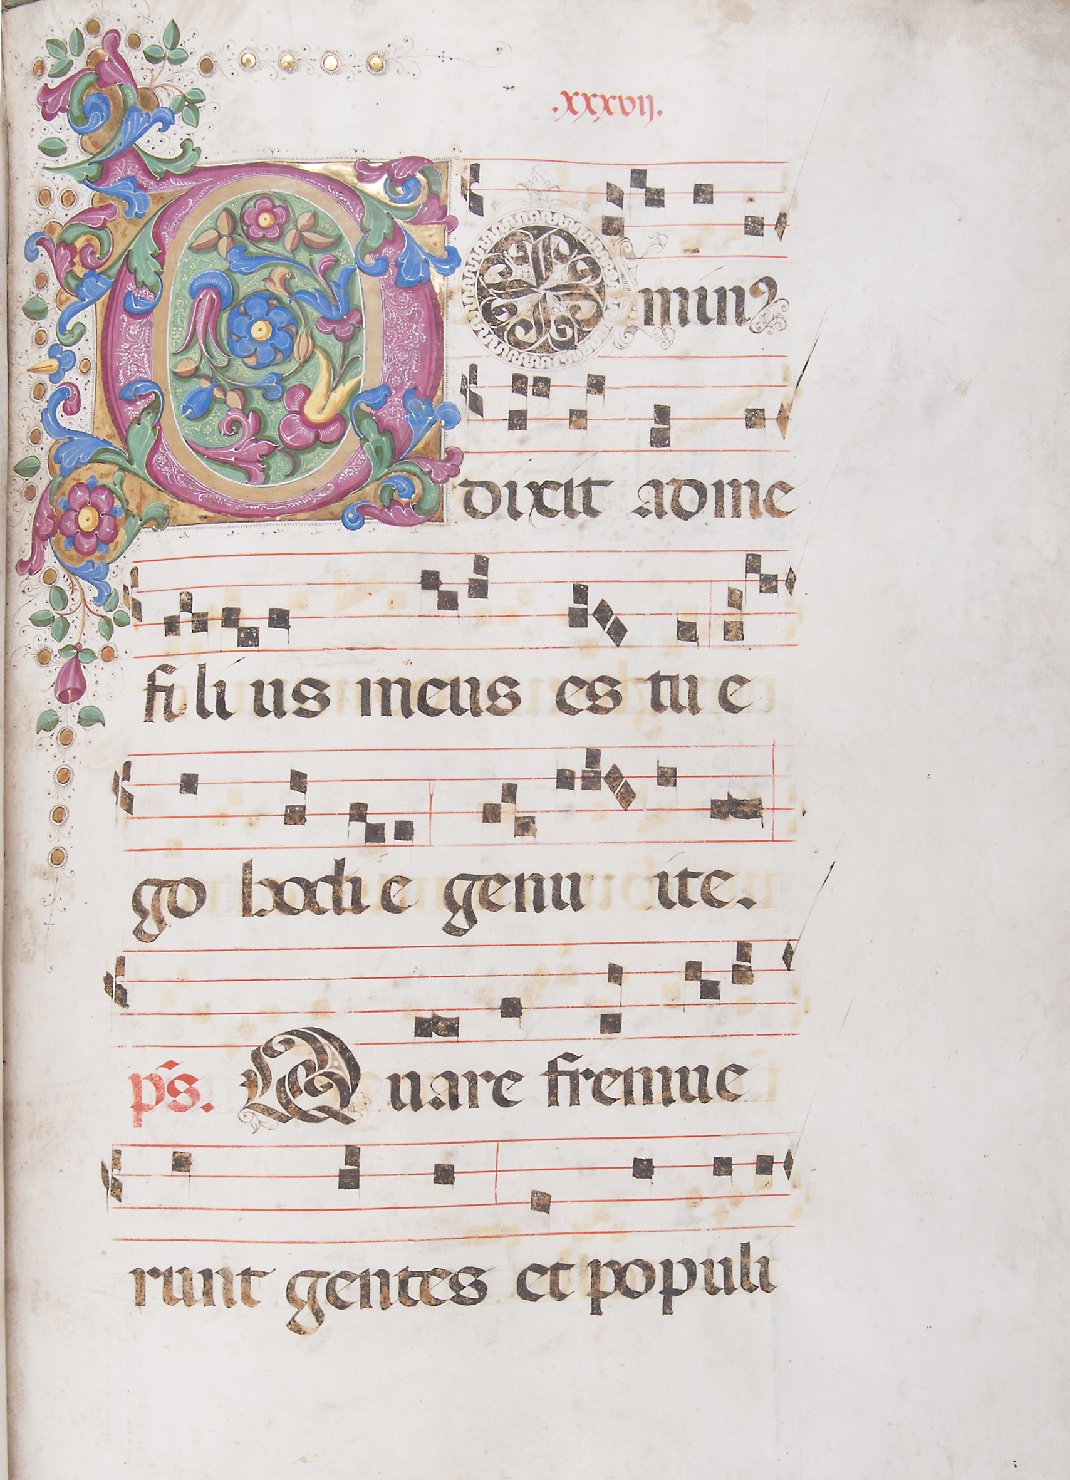 .xxxvij.
DOminꝰ
dixit ad me
filius meus es tu e
go hodie genu ite.
p̄s. Quare fremue
runt gentes et populi